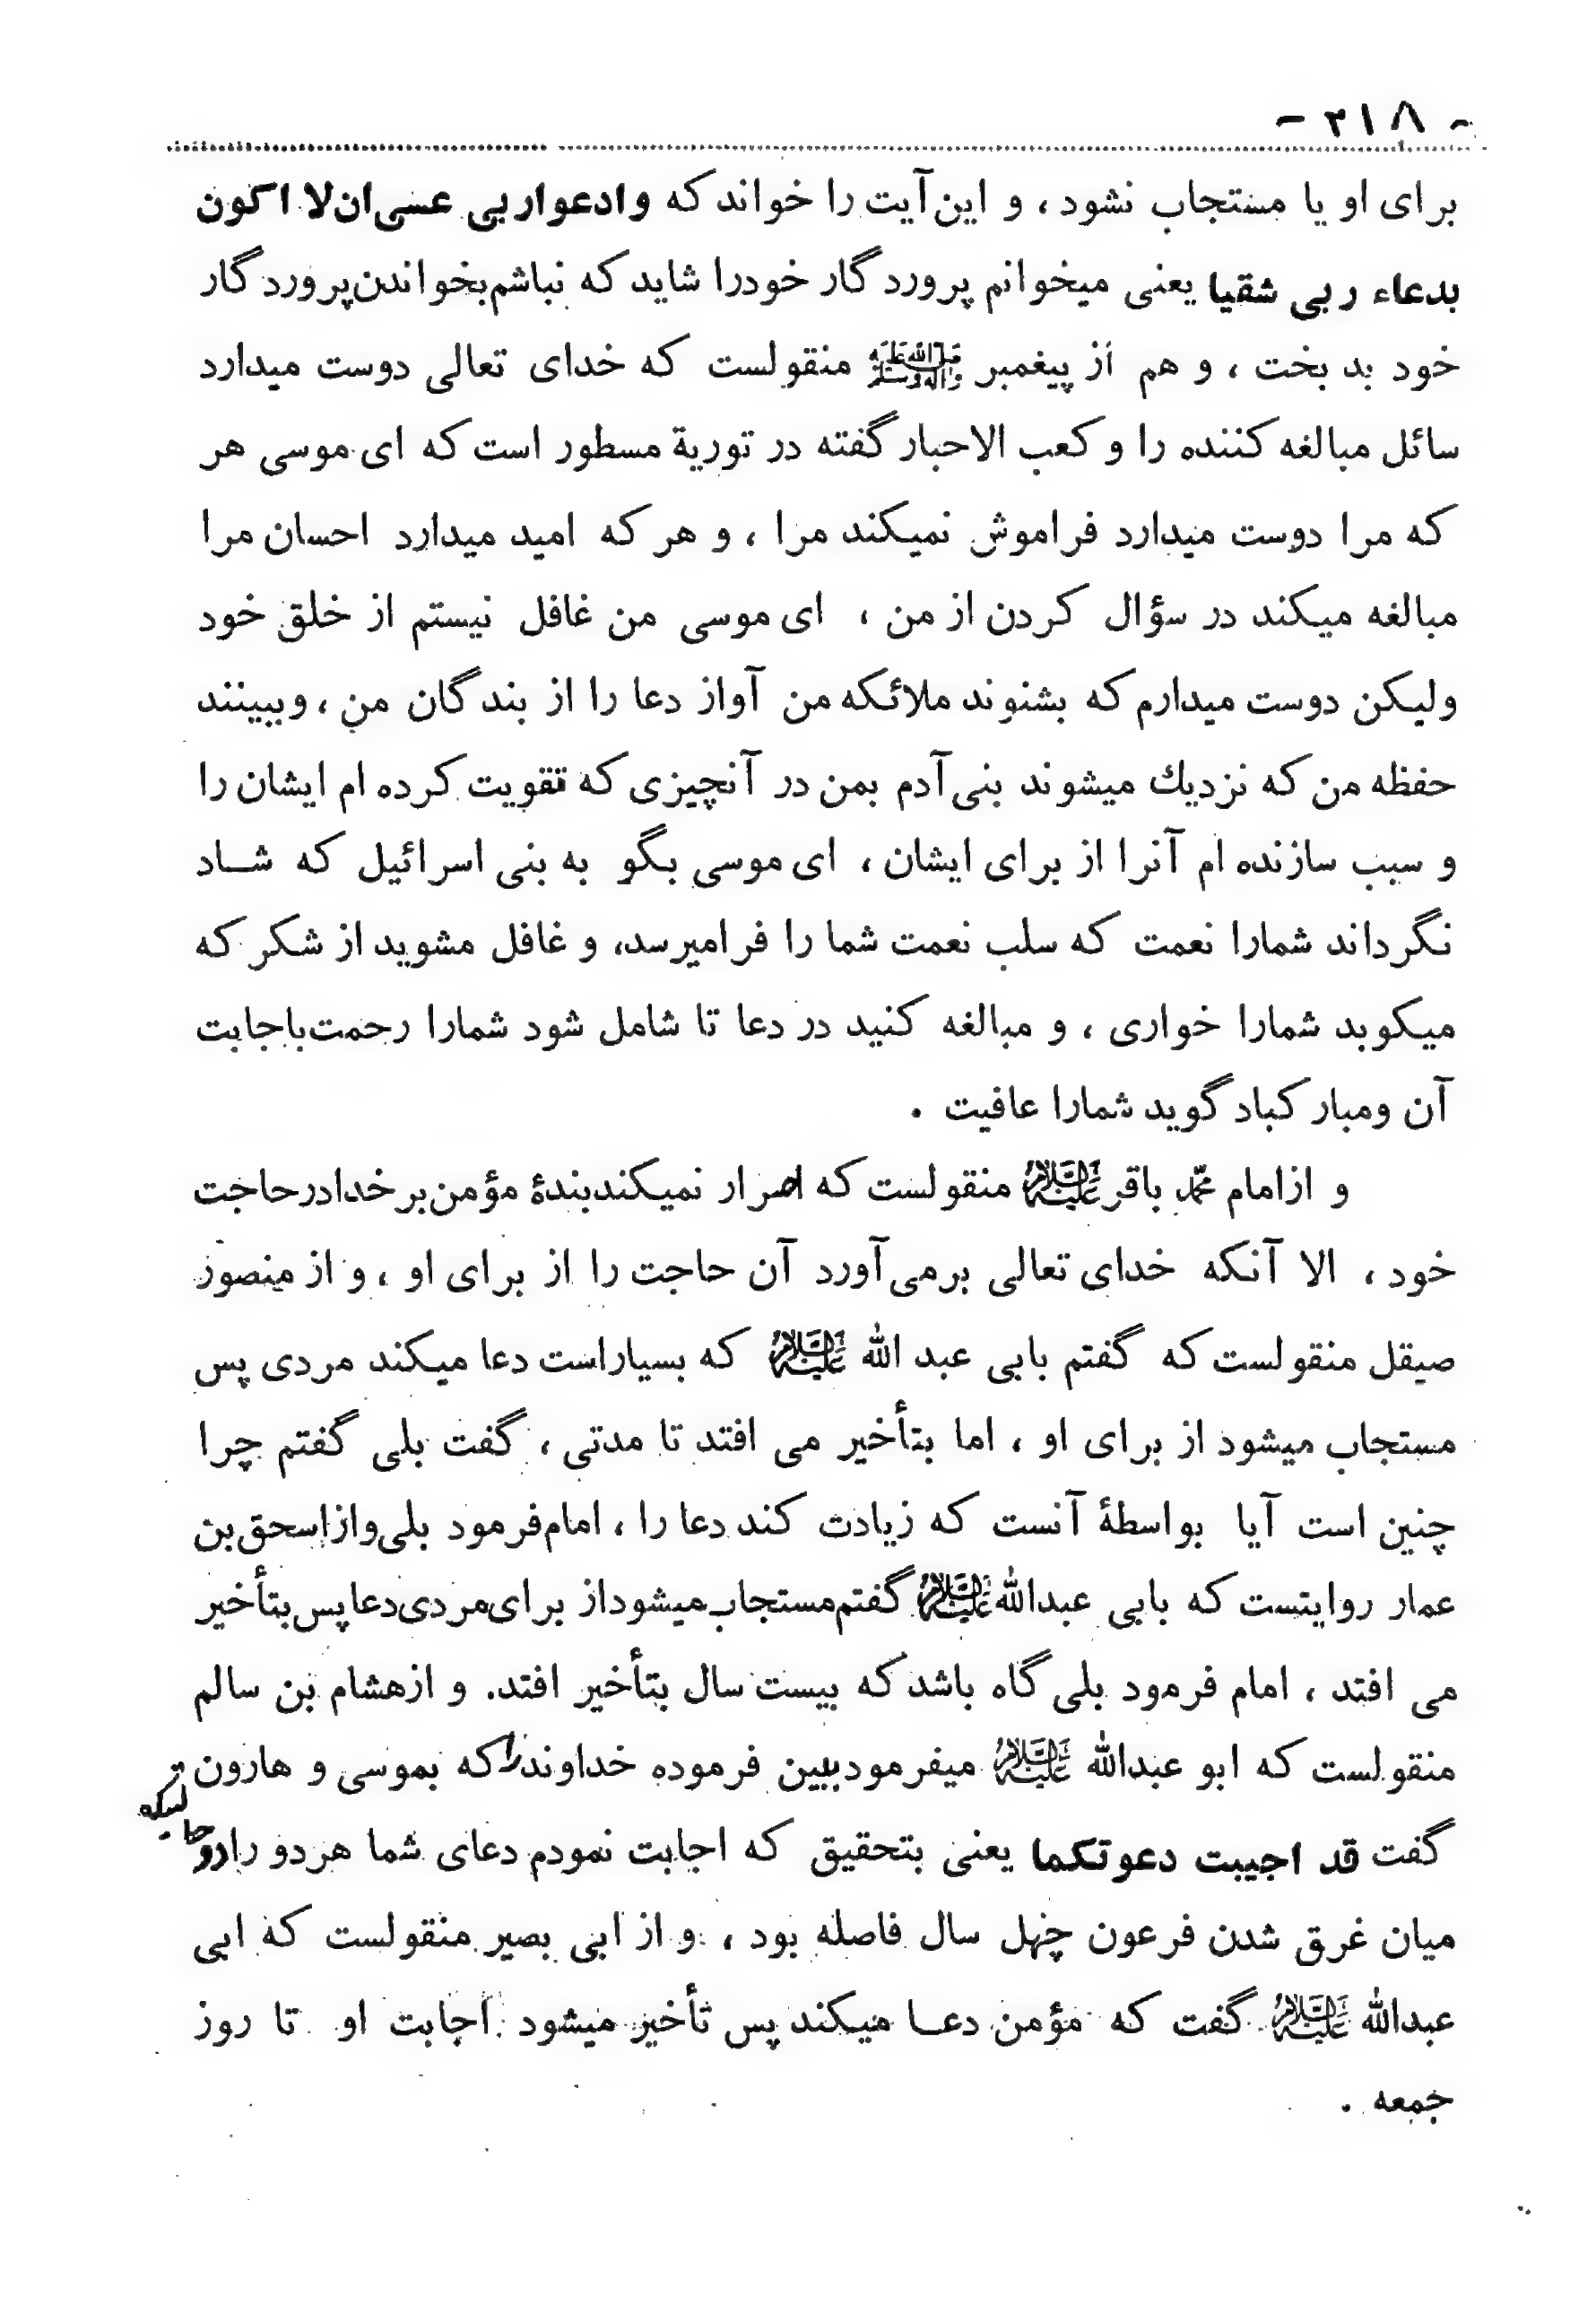 - ۲۱۸ -
برای او یا مستجاب نشود ، و این آیت را خواند که وادعوا ربی عسی ان لا اکون
بدعاء ربی شقیا یعنی میخوانم پروردگار خودرا شاید که نباشم بخواندن پروردگار
خود بد بخت ، و هم از پیغمبر ﷺ منقولست که خدای تعالی دوست میدارد
سائل مبالغه کننده را و کعب الاحبار گفته در توریة مسطور است که ای موسی هر
که مرا دوست میدارد فراموش نمیکند مرا ، و هر که امید میدارد احسان مرا
مبالغه میکند در سؤال کردن از من ، ای موسی من غافل نیستم از خلق خود
ولیکن دوست میدارم که بشنوند ملائکه من آواز دعا را از بندگان من ، و ببینند
حفظه من که نزدیك میشوند بنی آدم بمن در آنچیزی که تقویت کرده ام ایشان را
و سبب سازنده ام آنرا از برای ایشان ، ای موسی بگو به بنی اسرائیل که شاد
نگرداند شمارا نعمت که سلب نعمت شما را فرامیرسد، و غافل مشوید از شکر که
میکوبد شمارا خواری ، و مبالغه کنید در دعا تا شامل شود شمارا رحمت باجابت
آن ومبارکباد گوید شمارا عافیت .
و ازامام محمّد باقر علیه السلام منقولست که اصرار نمیکند بندهٔ مؤمن بر خدا در حاجت
خود ، الا آنکه خدای تعالی برمی آورد آن حاجت را از برای او ، و از منصور
صیقل منقولست که گفتم بابی عبد الله علیه السلام که بسیار است دعا میکند مردی پس
مستجاب میشود از برای او ، اما بتأخیر می افتد تا مدتی ، گفت بلی گفتم چرا
چنین است آیا بواسطهٔ آنست که زیادت کند دعا را ، امام فرمود بلی و از اسحق بن
عمار روایتست که بابی عبدالله علیه السلام گفتم مستجاب میشود از برای مردی دعا پس بتأخیر
می افتد ، امام فرمود بلی گاه باشد که بیست سال بتأخیر افتد. و از هشام بن سالم
منقولست که ابو عبدالله علیه السلام میفرمود ببین فرموده خداوند را که بموسی و هارون
گفت قد اجیبت دعوتکما یعنی بتحقیق که اجابت نمودم دعای شما هر دو را و حالیکه در
میان غرق شدن فرعون چهل سال فاصله بود ، و از ابی بصیر منقولست که ابی
عبدالله علیه السلام گفت که مؤمن دعا میکند پس تأخیر میشود اجابت او تا روز
جمعه .